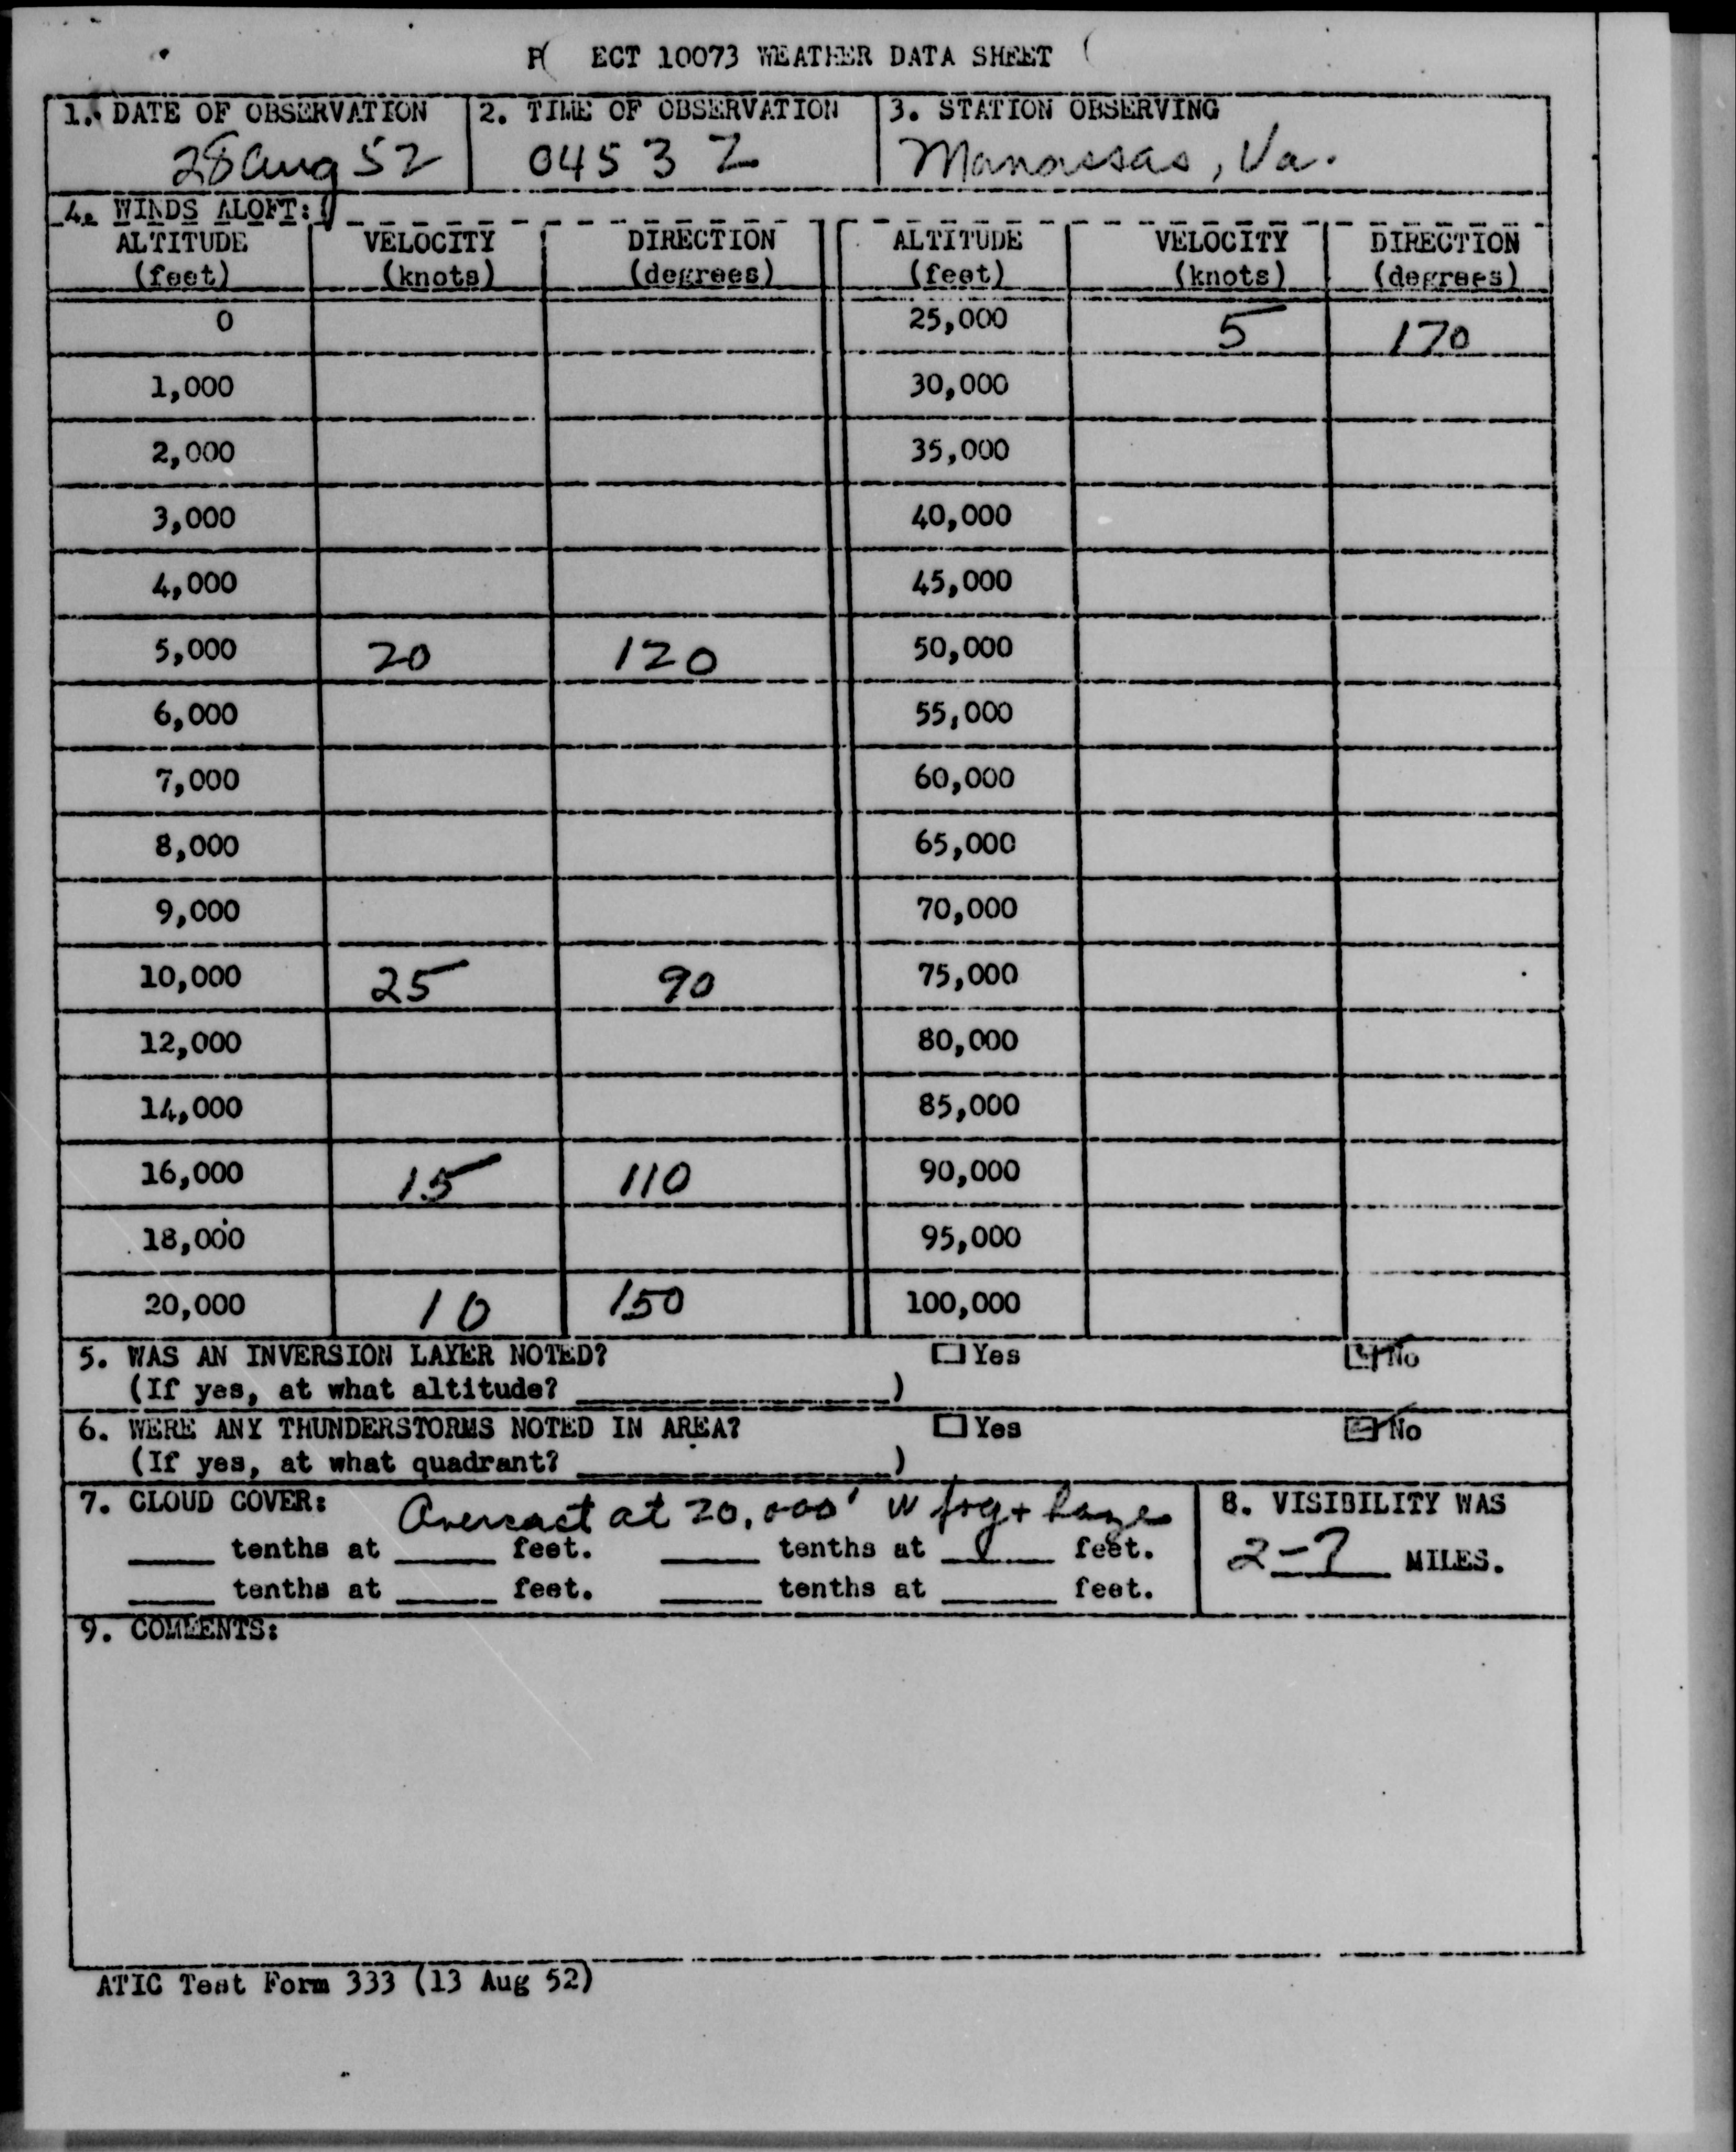 P( ECT 10073 WEATHER DATA SHEET (
1. DATE OF OBSERVATION 2. TIME OF OBSERVATION 3. STATION OBSERVING
28 Aug 52 0453 Z Manassas, Va.
4. WINDS ALOFT:
ALTITUDE VELOCITY DIRECTION ALTITUDE VELOCITY DIRECTION
(feet) (knots) (degrees) (feet) (knots) (degrees)
0 25,000 5 170
1,000 30,000
2,000 35,000
3,000 40,000
4,000 45,000
5,000 20 120 50,000
6,000 55,000
7,000 60,000
8,000 65,000
9,000 70,000
10,000 25 90 75,000
12,000 80,000
14,000 85,000
16,000 15 110 90,000
18,000 95,000
20,000 10 150 100,000
5. WAS AN INVERSION LAYER NOTED? Yes No
(If yes, at what altitude? )
6. WERE ANY THUNDERSTORMS NOTED IN AREA? Yes No
(If yes, at what quadrant? )
7. CLOUD COVER: Overcast at 20,000' w fog + haze 8. VISIBILITY WAS
tenths at feet. tenths at feet. 2-7 MILES.
tenths at feet. tenths at feet.
9. COMMENTS:
ATIC Test Form 333 (13 Aug 52)